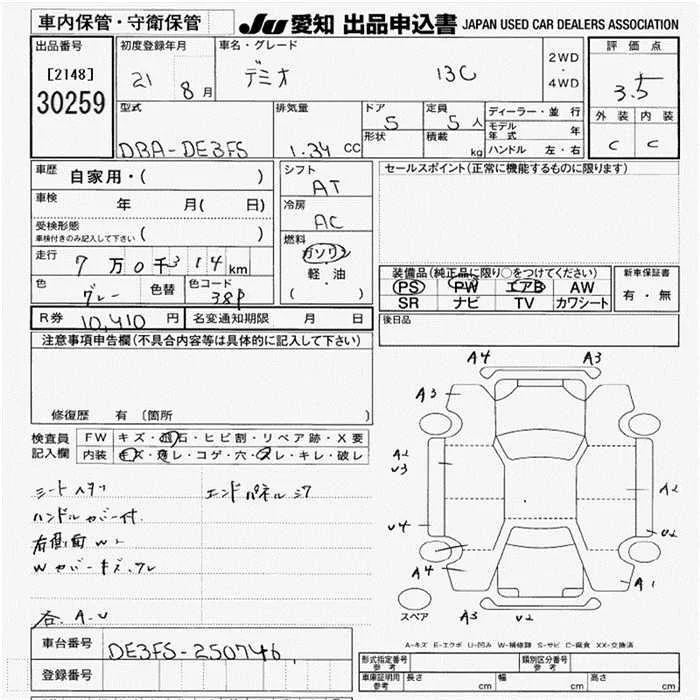 車内保管・守衛保管
JU 愛知 出品申込書 JAPAN USED CAR DEALERS ASSOCIATION
出品番号
[2148]
30259
初度登録年月
21 8 月
車名・グレード
デミオ 13C
2WD
・
4WD
評価点
3.5
外装 内装
C C
型式
DBA-DE3FS
排気量
1.34 CC
ドア
5
形状
定員
5 人
積載
kg
ディーラー・並行
モデル年式 年
ハンドル 左・右
車歴
自家用・( )
車検
年 月( 日)
受検形態
車検付きのみ記入して下さい ( )
走行
7万0千314km
色
グレー
色替
色コード
38P
シフト
AT
冷房
AC
燃料
ガソリン
軽・油
( )
セールスポイント(正常に機能するものに限ります)
装備品(純正品に限り○をつけてください)
PS PW エアB AW
SR ナビ TV カワシート
新車保証書
有・無
R券 10,410 円
名変通知期限 月 日
後日品
注意事項申告欄(不具合内容等は具体的に記入して下さい)
修復歴 有 〔箇所 〕
検査員
記入欄
FW キズ・飛石・ヒビ割・リペア跡・X要
内装 キズ・汚レ・コゲ・穴・スレ・キレ・破レ
シートヘタリ
ハンドルカバー付
右側面W2
Wカバーキズ、ワレ
各 A.U
エンドパネルシワ
A4 A3
A3
A2
U3
U4
A4
A2
U2
A1
スペア
A3 U2
A-キズ E-エクボ U-凹み W-補修跡 S-サビ C-腐食 XX-交換済
車台番号 DE3FS-250746
登録番号
型式指定番号 参考
類別区分番号 参考
車庫証明用 参考
長さ cm
幅 cm
高さ cm